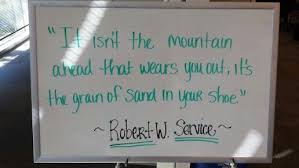 "It isn't the mountain
ahead that wears you out, it's
the grain of sand in your shoe"
~Robert W. Service~